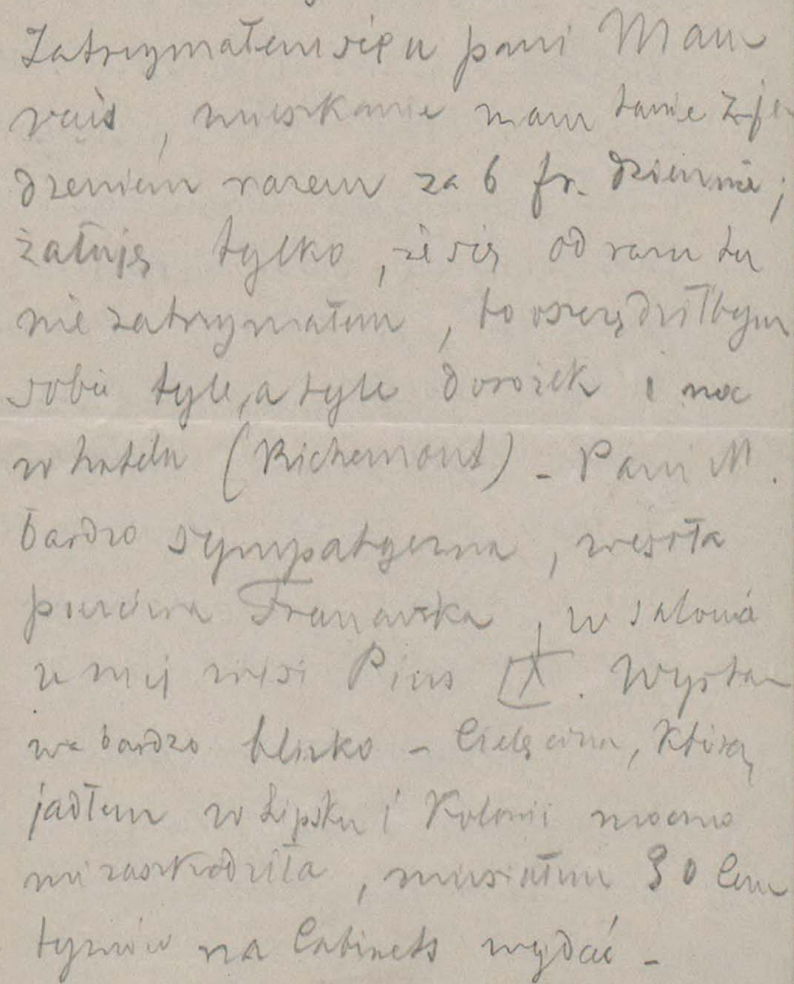 Zatrzymałem się u pani Mau
vais, mieszkanie mam tanie z je
dzeniem razem za 6 fr. dziennie;
żałuję tylko, że się od razu tu
nie zatrzymałem, to oszczędziłbym
sobie tyle, a tyle dorożek i noc
w hotelu (Richemont) - Pani M.
bardzo sympatyczna, wesoła
Francuzka, w salonie
u niej wisi Pius IX. Wysta
wa bardzo blizko - Cielęcina, którą
jadłem w Lipsku i Kolonii mocno
mi zaszkodziła, musiałem 30 cen
tymów na Cabinets wydać -